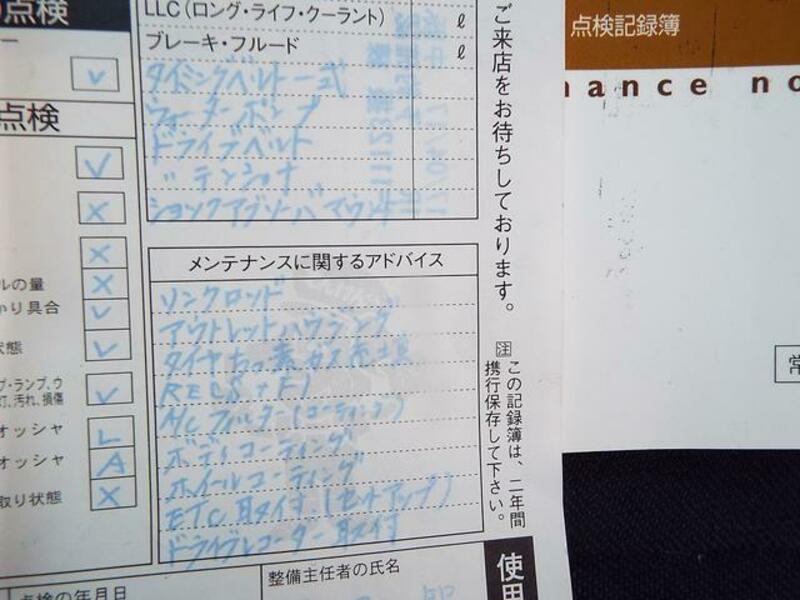 点検
LLC（ロング・ライフ・クーラント） ℓ
ブレーキ・フルード ℓ
タイミングベルト一式
ウォーターポンプ
ドライブベルト
〃 テンショナ
ショックアブソーバマウント
点検
ルの量
かり具合
状態
プ・ランプ、ウ
灯、汚れ、損傷
オッシャ
オッシャ
取り状態
メンテナンスに関するアドバイス
リンクロッド
アウトレットハウジング
タイヤちっ素ガス充填
RECS + F1
A/C フィルター（コーティング）
ボディコーティング
ホイールコーティング
ETC 取付.（セットアップ）
ドライブレコーダー取付
点検の年月日
整備主任者の氏名
ご来店をお待ちしております。
注 この記録簿は、二年間
携行保存して下さい。
使用
点検記録簿
nance no
常